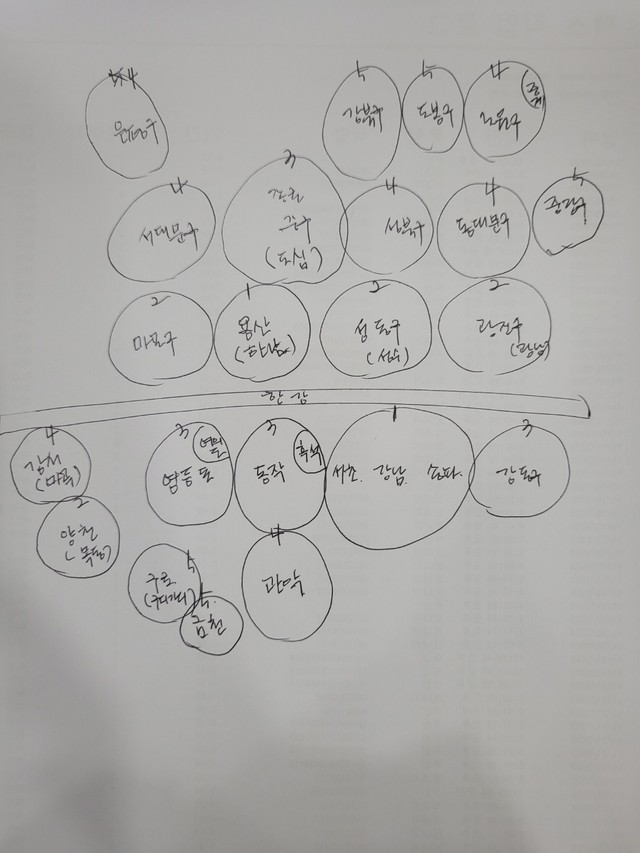 4
은평구
5
강북구
5
도봉구
4
노원구
4
서대문구
3
종로
중구
(도심)
4
성북구
4
동대문구
5
중랑구
2
마포구
1
용산
(한남)
2
성동구
(성수)
2
광진구
(광남)
한강
4
강서
(마곡)
2
양천
(목동)
3
영등포
3
동작
흑석
1
서초. 강남. 송파.
3
강동구
5
구로
(구디가디)
5.
금천
4
관악